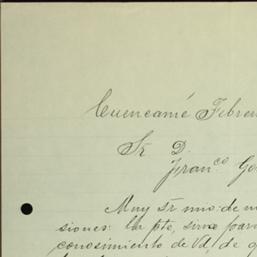 Cuencamé Febrer
Sr. D.
Franco Go
Muy Sr mio: de m
siones: La pte, sirve para
conosimiento de Vd, de q